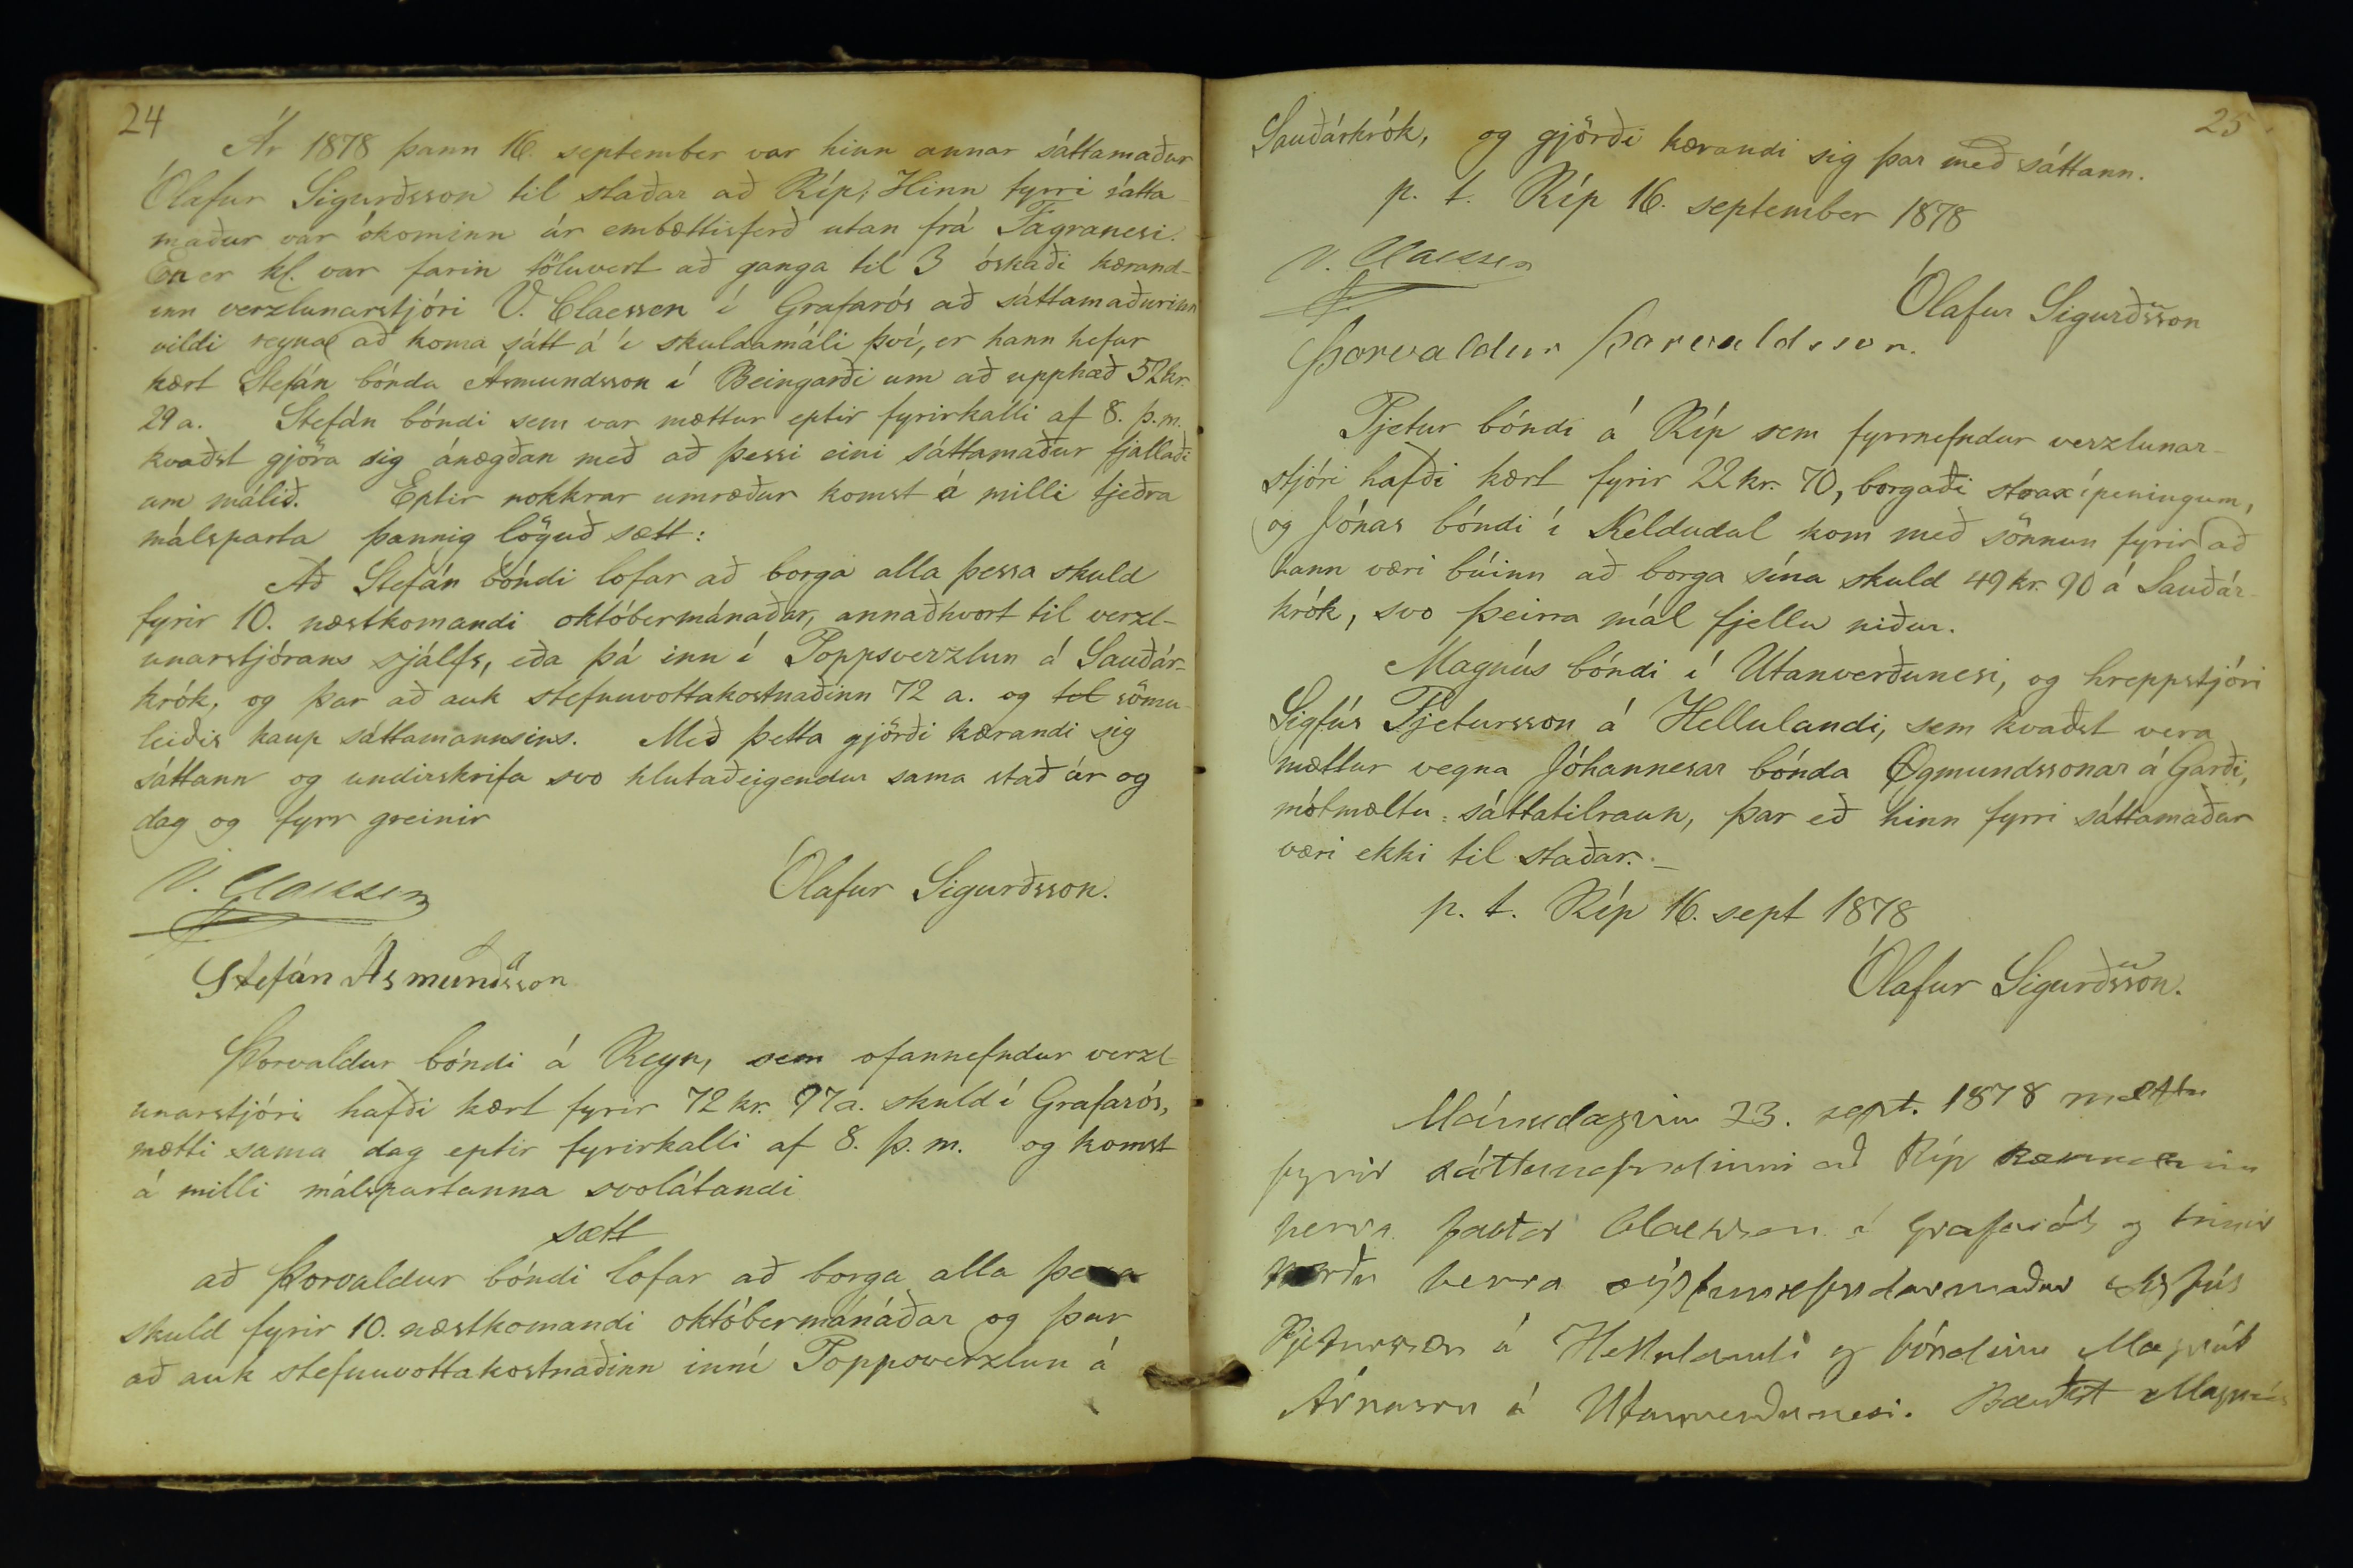 24
Ár 1878 þann 16. september var hinn annar sáttamaður
Ólafur Sigurðsson til staðar að Ríp; Hinn fyrri sátta-
maður var ókominn úr embættisferð utan frá Fagranesi.
En er kl. var farin töluvert að ganga til 3 óskaði kærand-
inn verzlunarstjóri V. Claessen í Grafarós að sáttamaðurinn
vildi reyna að koma sátt á í skuldamáli því, er hann hefur
kært Stefán bónda Ásmundsson í Beingarði um að upphæð 52 kr.
29 a. Stefán bóndi sem var mættur eptir fyrirkalli af 8. þ.m.
kvaðst gjöra sig ánægðan með að þessi eini sáttamaður fjallaði
um málið. Eptir nokkrar umræður komst á milli tjeðra
málsparta þannig löguð sætt:
Að Stefán bóndi lofar að borga alla þessa skuld
fyrir 10. næstkomandi októbermánaðar, annaðhvort til verzl-
unarstjórans sjálfs, eða þá inn í Poppsverzlun á Sauðár-
krók, og þar að auk stefnuvottakostnaðinn 72 a. og tol sömu-
leiðis kaup sáttamannsins. Með þetta gjörði kærandi sig
sáttann og undirskrifa svo hlutaðeigendur sama stað ár og
dag og fyrr greinir
V. Claessen
Ólafur Sigurðsson.
Stefán Ásmundsson
Þorvaldur bóndi á Reyn, sem ofannefndur verzl-
unarstjóri hafði kært fyrir 72 kr. 77 a. skuld í Grafarós,
mætti sama dag eptir fyrirkalli af 8. þ. m. og komst
á milli málspartanna svolátandi
sætt
að Þorvaldur bóndi lofar að borga alla þessa
skuld fyrir 10. næstkomandi októbermánaðar og þar
að auk stefnuvottakostnaðinn inní Poppsverzlun á
25
Sauðárkrók, og gjörði kærandi sig þar með sáttann.
p. t. Ríp 16. september 1878
V. Claessen
Ólafur Sigurðsson
Þorvaldur Þorvaldsson.
Pjetur bóndi á Ríp sem fyrrnefndur verzlunar-
stjóri hafði kært fyrir 22 kr. 70, borgaði strax í peningum,
og Jónas bóndi í Keldudal kom með sönnun fyrir að
hann væri búinn að borga sína skuld 49 kr. 90 á Sauðár-
krók, svo þeirra mál fjellu niður.
Magnús bóndi í Utanverðunesi, og hreppstjóri
Sigfús Pjetursson á Hellulandi, sem kvaðst vera
mættur vegna Jóhannesar bónda Ögmundssonar á Garði,
mótmæltu sáttatilraun, þar eð hinn fyrri sáttamaður
væri ekki til staðar.
p. t. Ríp 16. sept 1878
Ólafur Sigurðsson.
Mánudaginn 23. sept. 1878 mættu
fyrir sáttanefndinni að Ríp
herra factor Claessen í Grafarós og hinir
herra sýslunefndarmaður Sigfús
Pjetursson á Hellulandi og bóndinn Magnús
Árnason á Utanverðunesi. Magnús